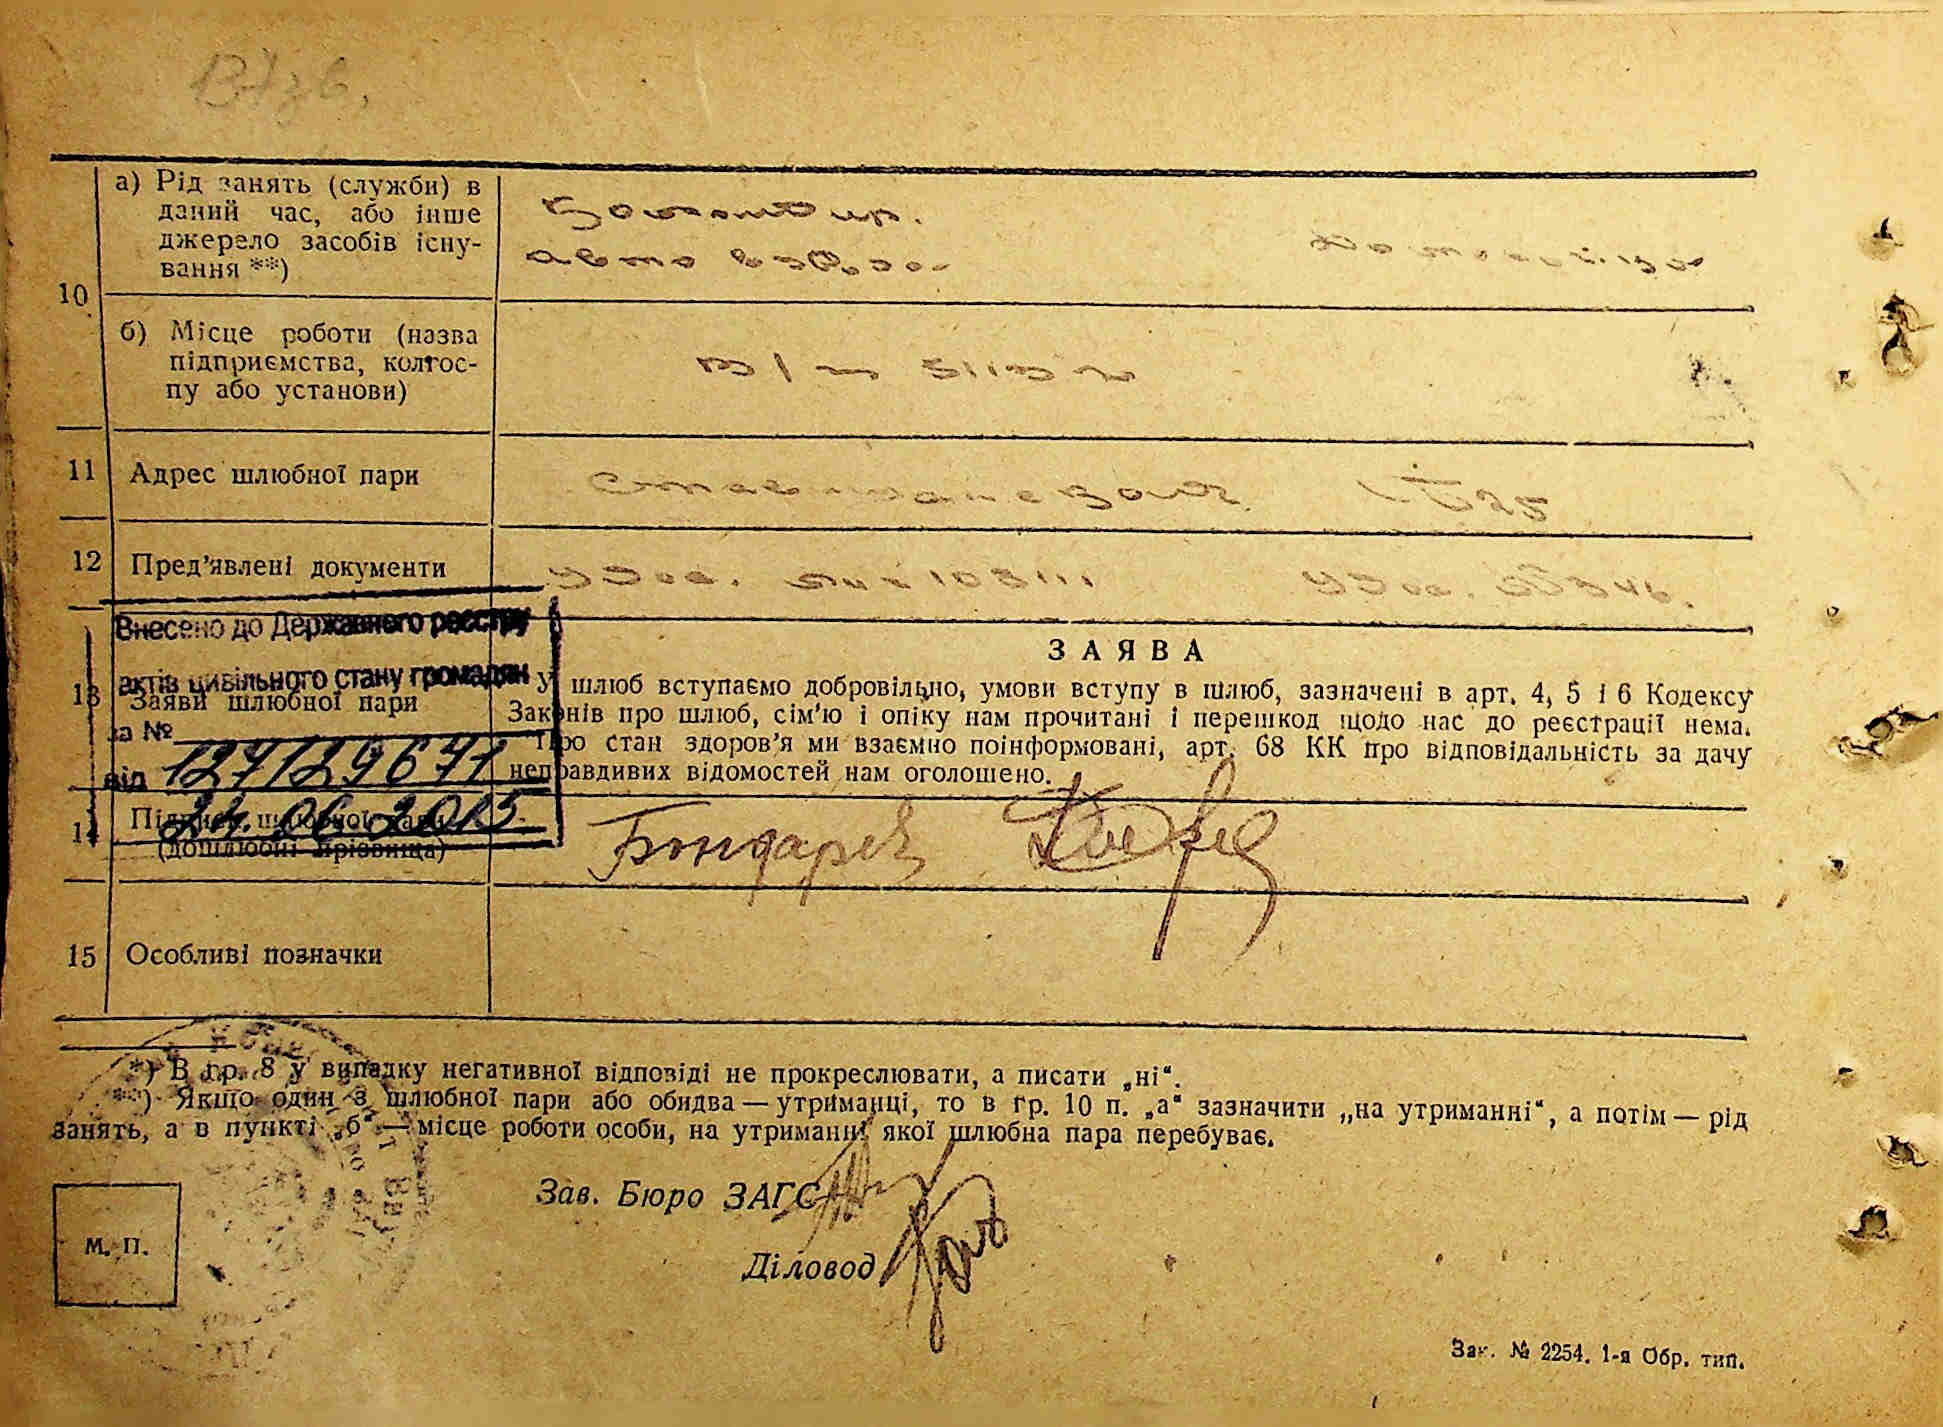 а) Рід занять (служби) в
даний час, або інше
джерело засобів існу-
вання **)
Командир.
авто взвода
10
б) Місце роботи (назва
підприємства, колгос-
пу або установи)
11
Адрес шлюбної пари
25
12
Пред'явлені документи
Удос.
Удос.
Внесено до Державного реєстру
актів цивільного стану громадян
за №
127129671
від
24.06.2015
13
Заяви шлюбної пари
ЗАЯВА
У шлюб вступаємо добровільно, умови вступу в шлюб, зазначені в арт. 4, 5 і 6 Кодексу
Законів про шлюб, сім'ю і опіку нам прочитані і перешкод щодо нас до реєстрації нема.
Про стан здоров'я ми взаємно поінформовані, арт. 68 КК про відповідальність за дачу
неправдивих відомостей нам оголошено.
14
Підписи шлюбної пари
(дошлюбні прізвища)
15
Особливі позначки
*) В гр. 8 у випадку негативної відповіді не прокреслювати, а писати „ні“.
**) Якщо один з шлюбної пари або обидва — утриманці, то в гр. 10 п. „а“ зазначити „на утриманні“, а потім — рід
занять, а в пункті „б“ — місце роботи особи, на утриманні якої шлюбна пара перебуває.
Зав. Бюро ЗАГС
Діловод
М. П.
Зак. № 2254. 1-я Обр. тип.